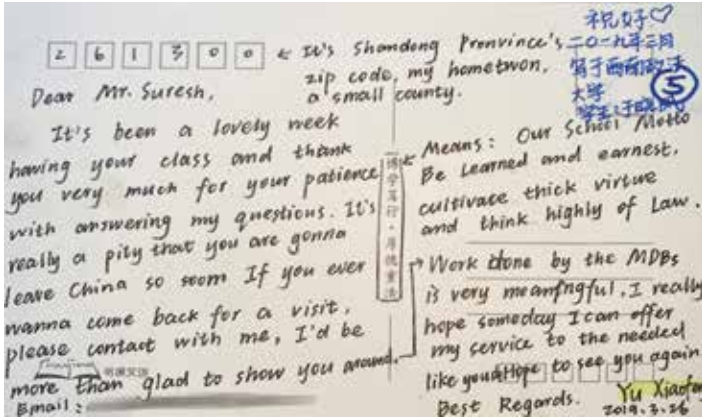 261300 ← It's Shandong Pronvince's
zip code, my hometwon,
a small county.
祝好♡
二〇一九年三月
写于西南政法
大学
学生:于晓
⑤
Dear Mr. Suresh,
It's been a lovely week
having your class and thank
you very much for your patience
with answering my questions. It's
really a pity that you are gonna
leave China so soom If you ever
wanna come back for a visit,
please contact with me, I'd be
more than glad to show you around.
Email:
博学笃行·厚德重法
← Means: Our School Motto
Be Learned and earnest,
cultivate thick virtue
and think highly of Law.
Work done by the MDBs
is very meanfngful. I really
hope someday I can offer
my service to the needed
like you. Hope to see you again
Best Regards. Yu Xiaofen
2019.3.26